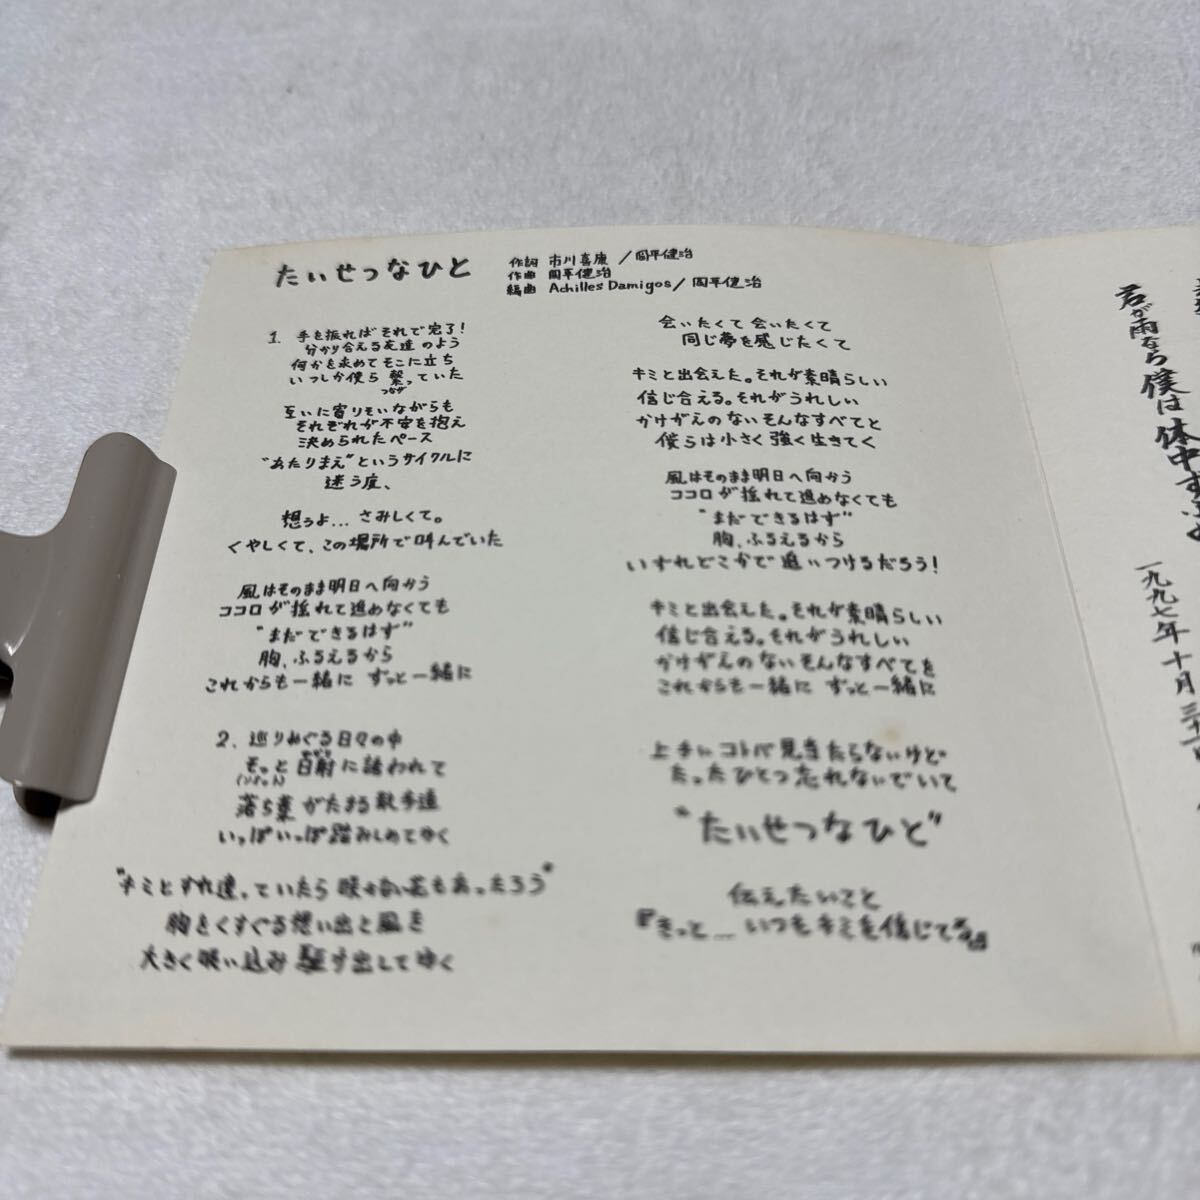 たいせつなひと
作詞 市川喜康/岡平健治
作曲 岡平健治
編曲 Achilles Damigos/岡平健治
1. 手を振ればそれで完了!
分かり合える友達のよう
何かを求めてそこに立ち
いつしか僕ら繋っていた
つなが
互いに寄りそいながらも
それぞれが不安を抱え
決められたペース
“あたりまえ”というサイクルに
迷う度、
想うよ...さみしくて。
くやしくて、この場所で叫んでいた
風はそのまま明日へ向かう
ココロが揺れて進めなくても
“まだできるはず”
胸、ふるえるから
これからも一緒に ずっと一緒に
2. 巡りめぐる日々の中
そっと日射に誘われて
落ち葉がたまる散歩道
いっぱいいっぱい踏みしめてゆく
“キミとすれ違っていたら 咲かない花もあったろう”
胸をくすぐる想い出と風を
大きく吸い込み 駆け出してゆく
会いたくて 会いたくて
同じ夢を感じたくて
キミと出会えた。それが素晴らしい
信じ合える。それがうれしい
かけがえのないそんなすべてと
僕らは小さく強く生きてく
風はそのまま明日へ向かう
ココロが揺れて進めなくても
“まだできるはず”
胸、ふるえるから
いずれどこかで追いつけるだろう!
キミと出会えた。それが素晴らしい
信じ合える。それがうれしい
かけがえのないそんなすべてを
これからも一緒に ずっと一緒に
上手いコトバ見当たらないけど
たったひとつ忘れないでいて
“たいせつなひと”
伝えたいこと
『きっと...いつもキミを信じてる』
君が雨なら僕は体中
一九九七年十月三十一日